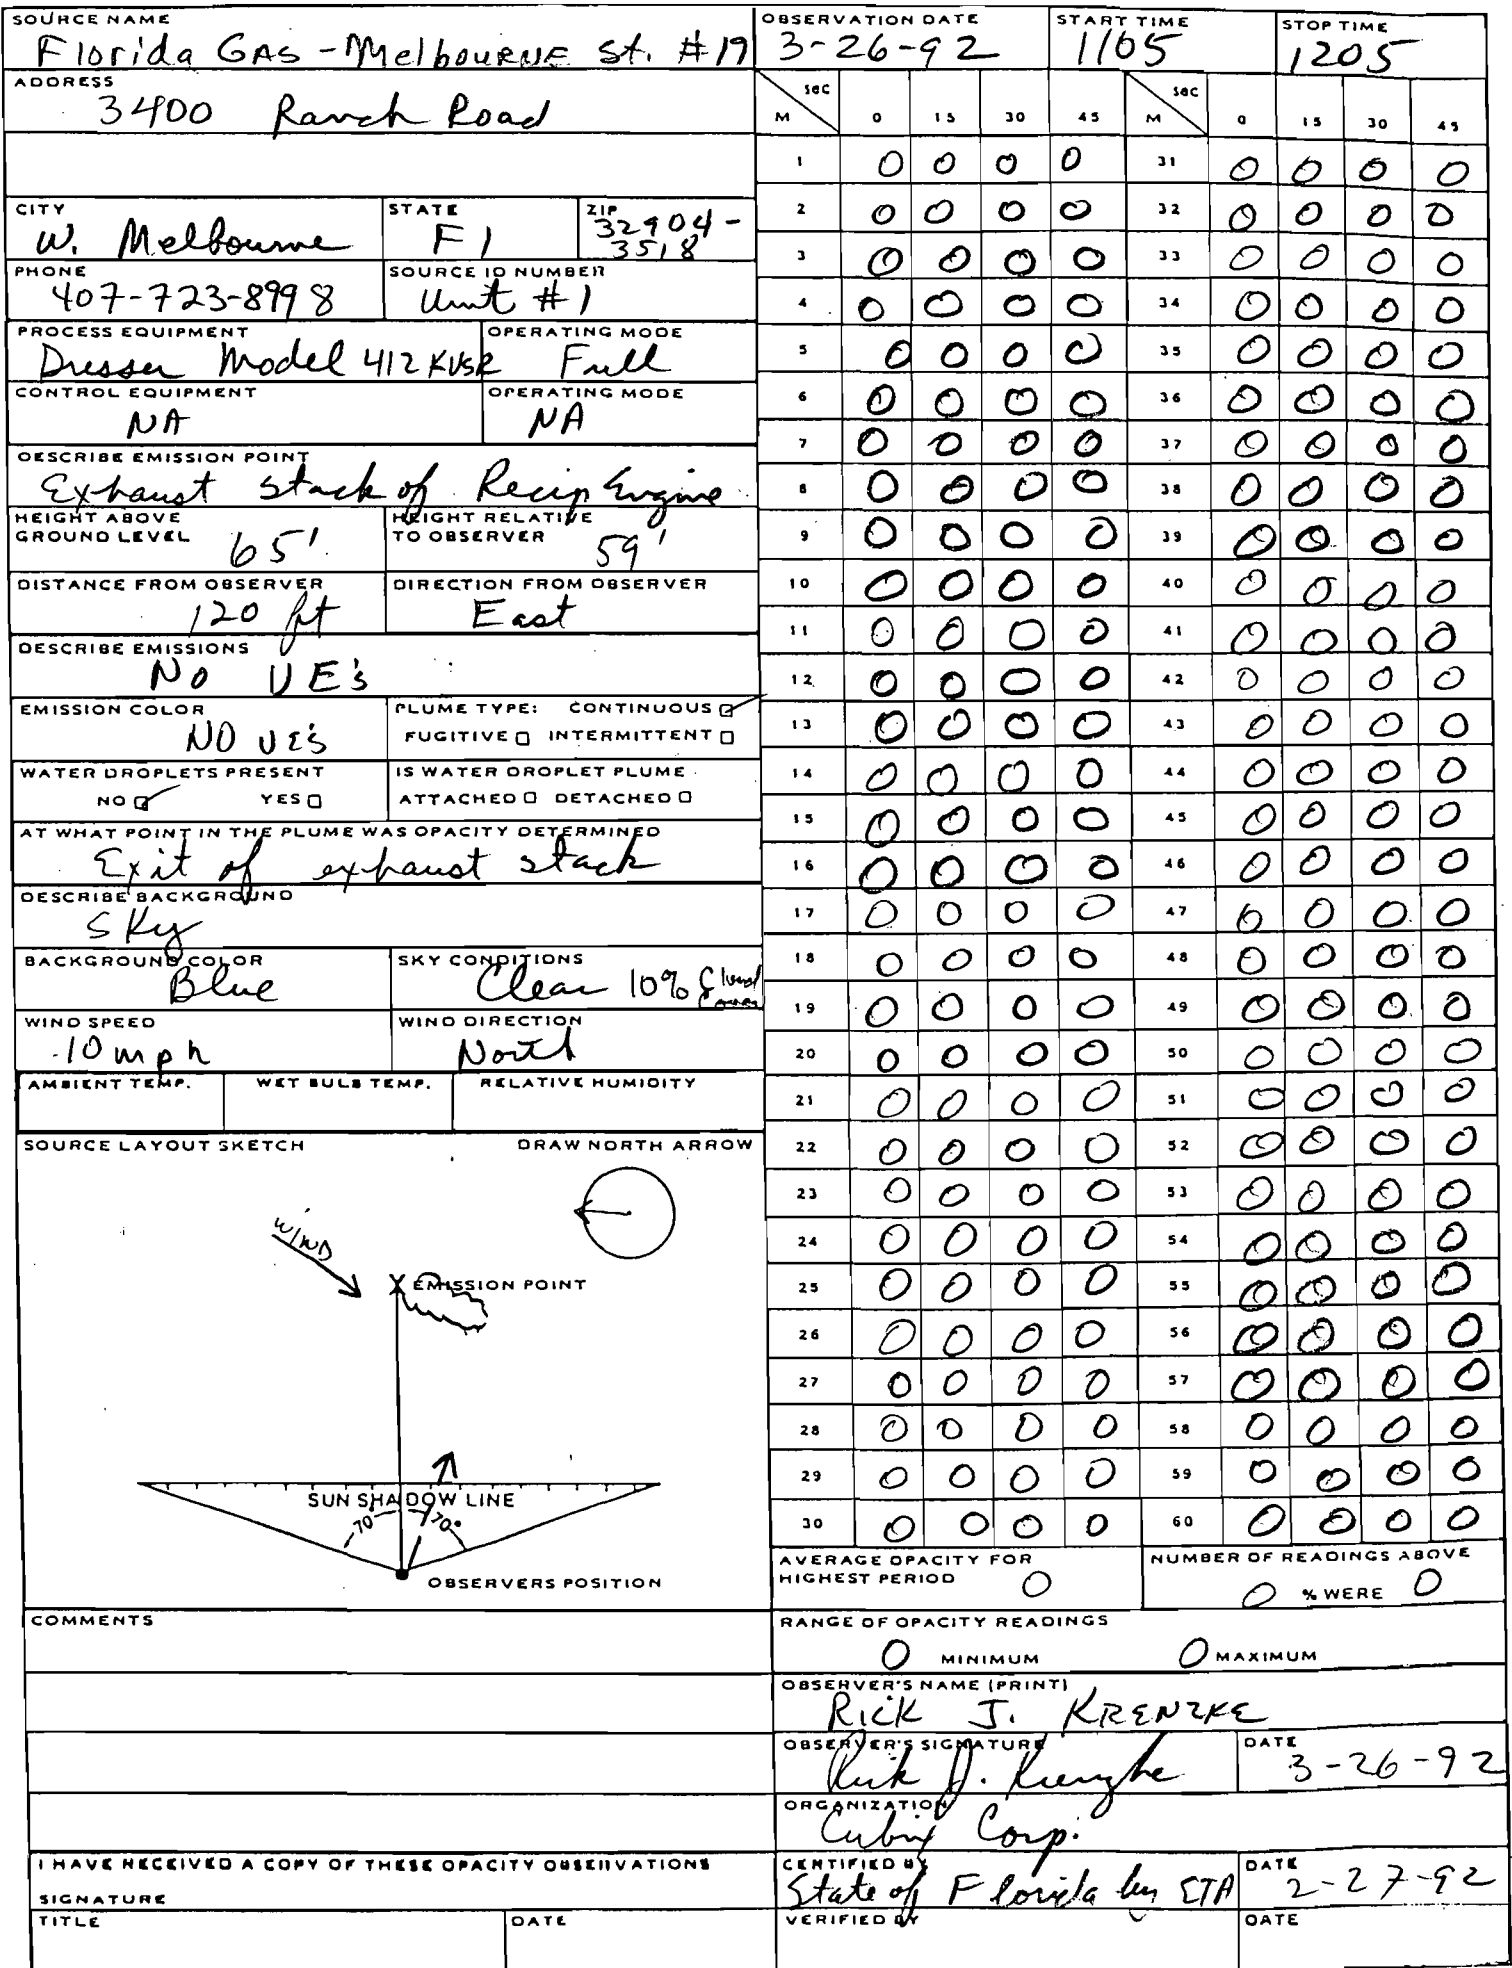 SOURCE NAME
Florida GAS - Melbourne St. #19
OBSERVATION DATE
3-26-92
START TIME
1105
STOP TIME
1205
ADDRESS
3400 Ranch Road
CITY
W. Melbourne
STATE
Fl
ZIP
32904-
3518
PHONE
407-723-8998
SOURCE ID NUMBER
Unit #1
PROCESS EQUIPMENT
Dresser Model 412 KVSR
OPERATING MODE
Full
CONTROL EQUIPMENT
NA
OPERATING MODE
NA
DESCRIBE EMISSION POINT
Exhaust stack of Recip Engine
HEIGHT ABOVE
GROUND LEVEL 65'
HEIGHT RELATIVE
TO OBSERVER 59'
DISTANCE FROM OBSERVER
120 ft
DIRECTION FROM OBSERVER
East
DESCRIBE EMISSIONS
No VE's
EMISSION COLOR
NO VE's
PLUME TYPE: CONTINUOUS
FUGITIVE INTERMITTENT
WATER DROPLETS PRESENT
NO YES
IS WATER DROPLET PLUME
ATTACHED DETACHED
AT WHAT POINT IN THE PLUME WAS OPACITY DETERMINED
Exit of exhaust stack
DESCRIBE BACKGROUND
Sky
BACKGROUND COLOR
Blue
SKY CONDITIONS
Clear 10% Cloud
cover
WIND SPEED
10 mph
WIND DIRECTION
North
AMBIENT TEMP. WET BULB TEMP. RELATIVE HUMIDITY
SOURCE LAYOUT SKETCH DRAW NORTH ARROW
WIND
X EMISSION POINT
SUN SHADOW LINE
70° 70°
OBSERVERS POSITION
COMMENTS
I HAVE RECEIVED A COPY OF THESE OPACITY OBSERVATIONS
SIGNATURE
TITLE DATE
M sec 0 15 30 45 M sec 0 15 30 45
1 0 0 0 0 31 0 0 0 0
2 0 0 0 0 32 0 0 0 0
3 0 0 0 0 33 0 0 0 0
4 0 0 0 0 34 0 0 0 0
5 0 0 0 0 35 0 0 0 0
6 0 0 0 0 36 0 0 0 0
7 0 0 0 0 37 0 0 0 0
8 0 0 0 0 38 0 0 0 0
9 0 0 0 0 39 0 0 0 0
10 0 0 0 0 40 0 0 0 0
11 0 0 0 0 41 0 0 0 0
12 0 0 0 0 42 0 0 0 0
13 0 0 0 0 43 0 0 0 0
14 0 0 0 0 44 0 0 0 0
15 0 0 0 0 45 0 0 0 0
16 0 0 0 0 46 0 0 0 0
17 0 0 0 0 47 0 0 0 0
18 0 0 0 0 48 0 0 0 0
19 0 0 0 0 49 0 0 0 0
20 0 0 0 0 50 0 0 0 0
21 0 0 0 0 51 0 0 0 0
22 0 0 0 0 52 0 0 0 0
23 0 0 0 0 53 0 0 0 0
24 0 0 0 0 54 0 0 0 0
25 0 0 0 0 55 0 0 0 0
26 0 0 0 0 56 0 0 0 0
27 0 0 0 0 57 0 0 0 0
28 0 0 0 0 58 0 0 0 0
29 0 0 0 0 59 0 0 0 0
30 0 0 0 0 60 0 0 0 0
AVERAGE OPACITY FOR
HIGHEST PERIOD 0
NUMBER OF READINGS ABOVE
0 % WERE 0
RANGE OF OPACITY READINGS
0 MINIMUM 0 MAXIMUM
OBSERVER'S NAME (PRINT)
RICK J. KRENZKE
OBSERVER'S SIGNATURE
Rick J. Krenzke
DATE
3-26-92
ORGANIZATION
Cubix Corp.
CERTIFIED BY
State of Florida by ETA
DATE
2-27-92
VERIFIED BY
DATE